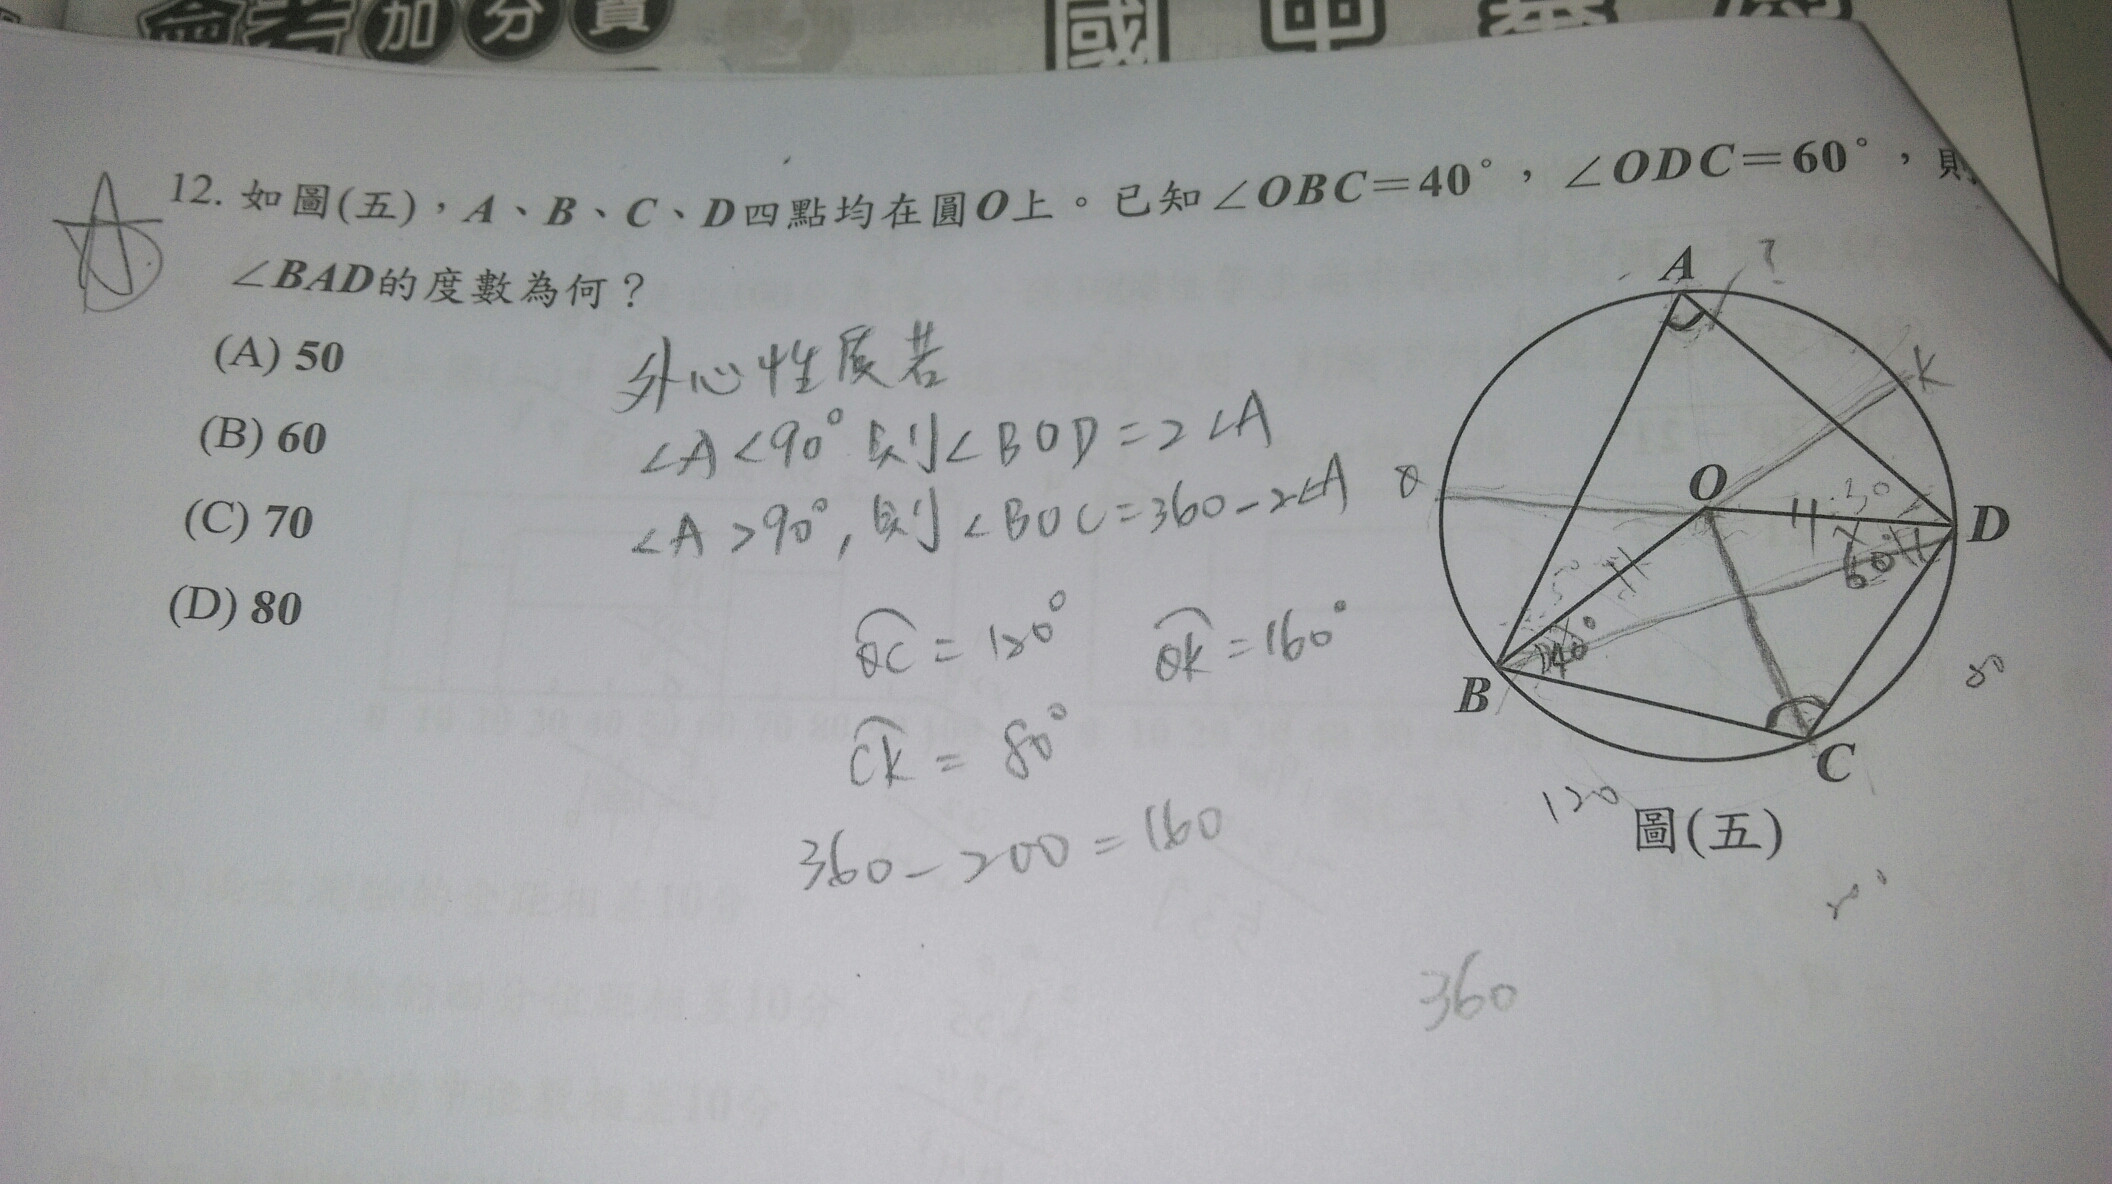 加分
國中
12. 如圖(五),A、B、C、D四點均在圓O上。已知∠OBC=40°,∠ODC=60°,則
∠BAD的度數為何?
(A) 50
(B) 60
(C) 70
(D) 80
外心性質若
∠A<90°則∠BOD=2∠A
∠A>90°,則∠BOC=360-2∠A
QC=120°
QK=160°
CK=80°
360-200=160
360
A
?
K
Q
O
D
60°
B
40°
80
C
120
圖(五)